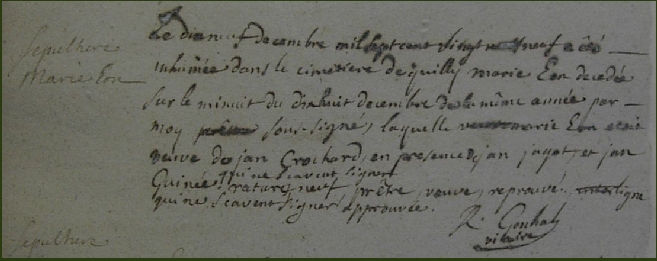 Sepulture
Marie Eon
Le dixneuf decembre mil sept cent vingt neuf a été
inhumée dans le cimetiere de quilly marie Eon decedée
sur le minuit du dixhuit decembre de la même année par
moy prêtre sous-signé, laquelle marie Eon etoit
veuve de jan Crochard, en presence de jan jagot, et jan
Guinée, qui ne scavent signer
rature neuf, prêtre, veuve, reprouvé, interligne
qui ne scavent signer approuvée.
vicaire
Sepulture